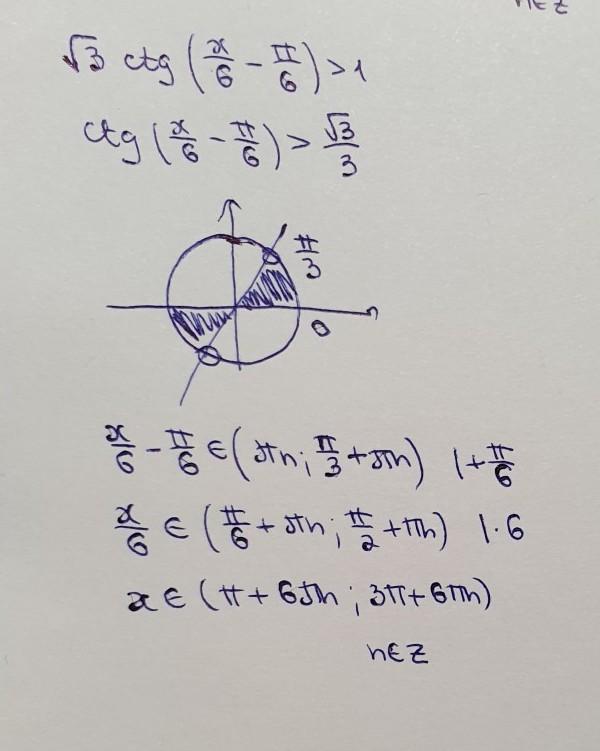 n∈Z
√3 ctg (x/6 − π/6) > 1
ctg (x/6 − π/6) > √3/3
π/3
0
x/6 − π/6 ∈ (πn; π/3 + πn) | + π/6
x/6 ∈ (π/6 + πn; π/2 + πn) | · 6
x ∈ (π + 6πn; 3π + 6πn)
n∈Z